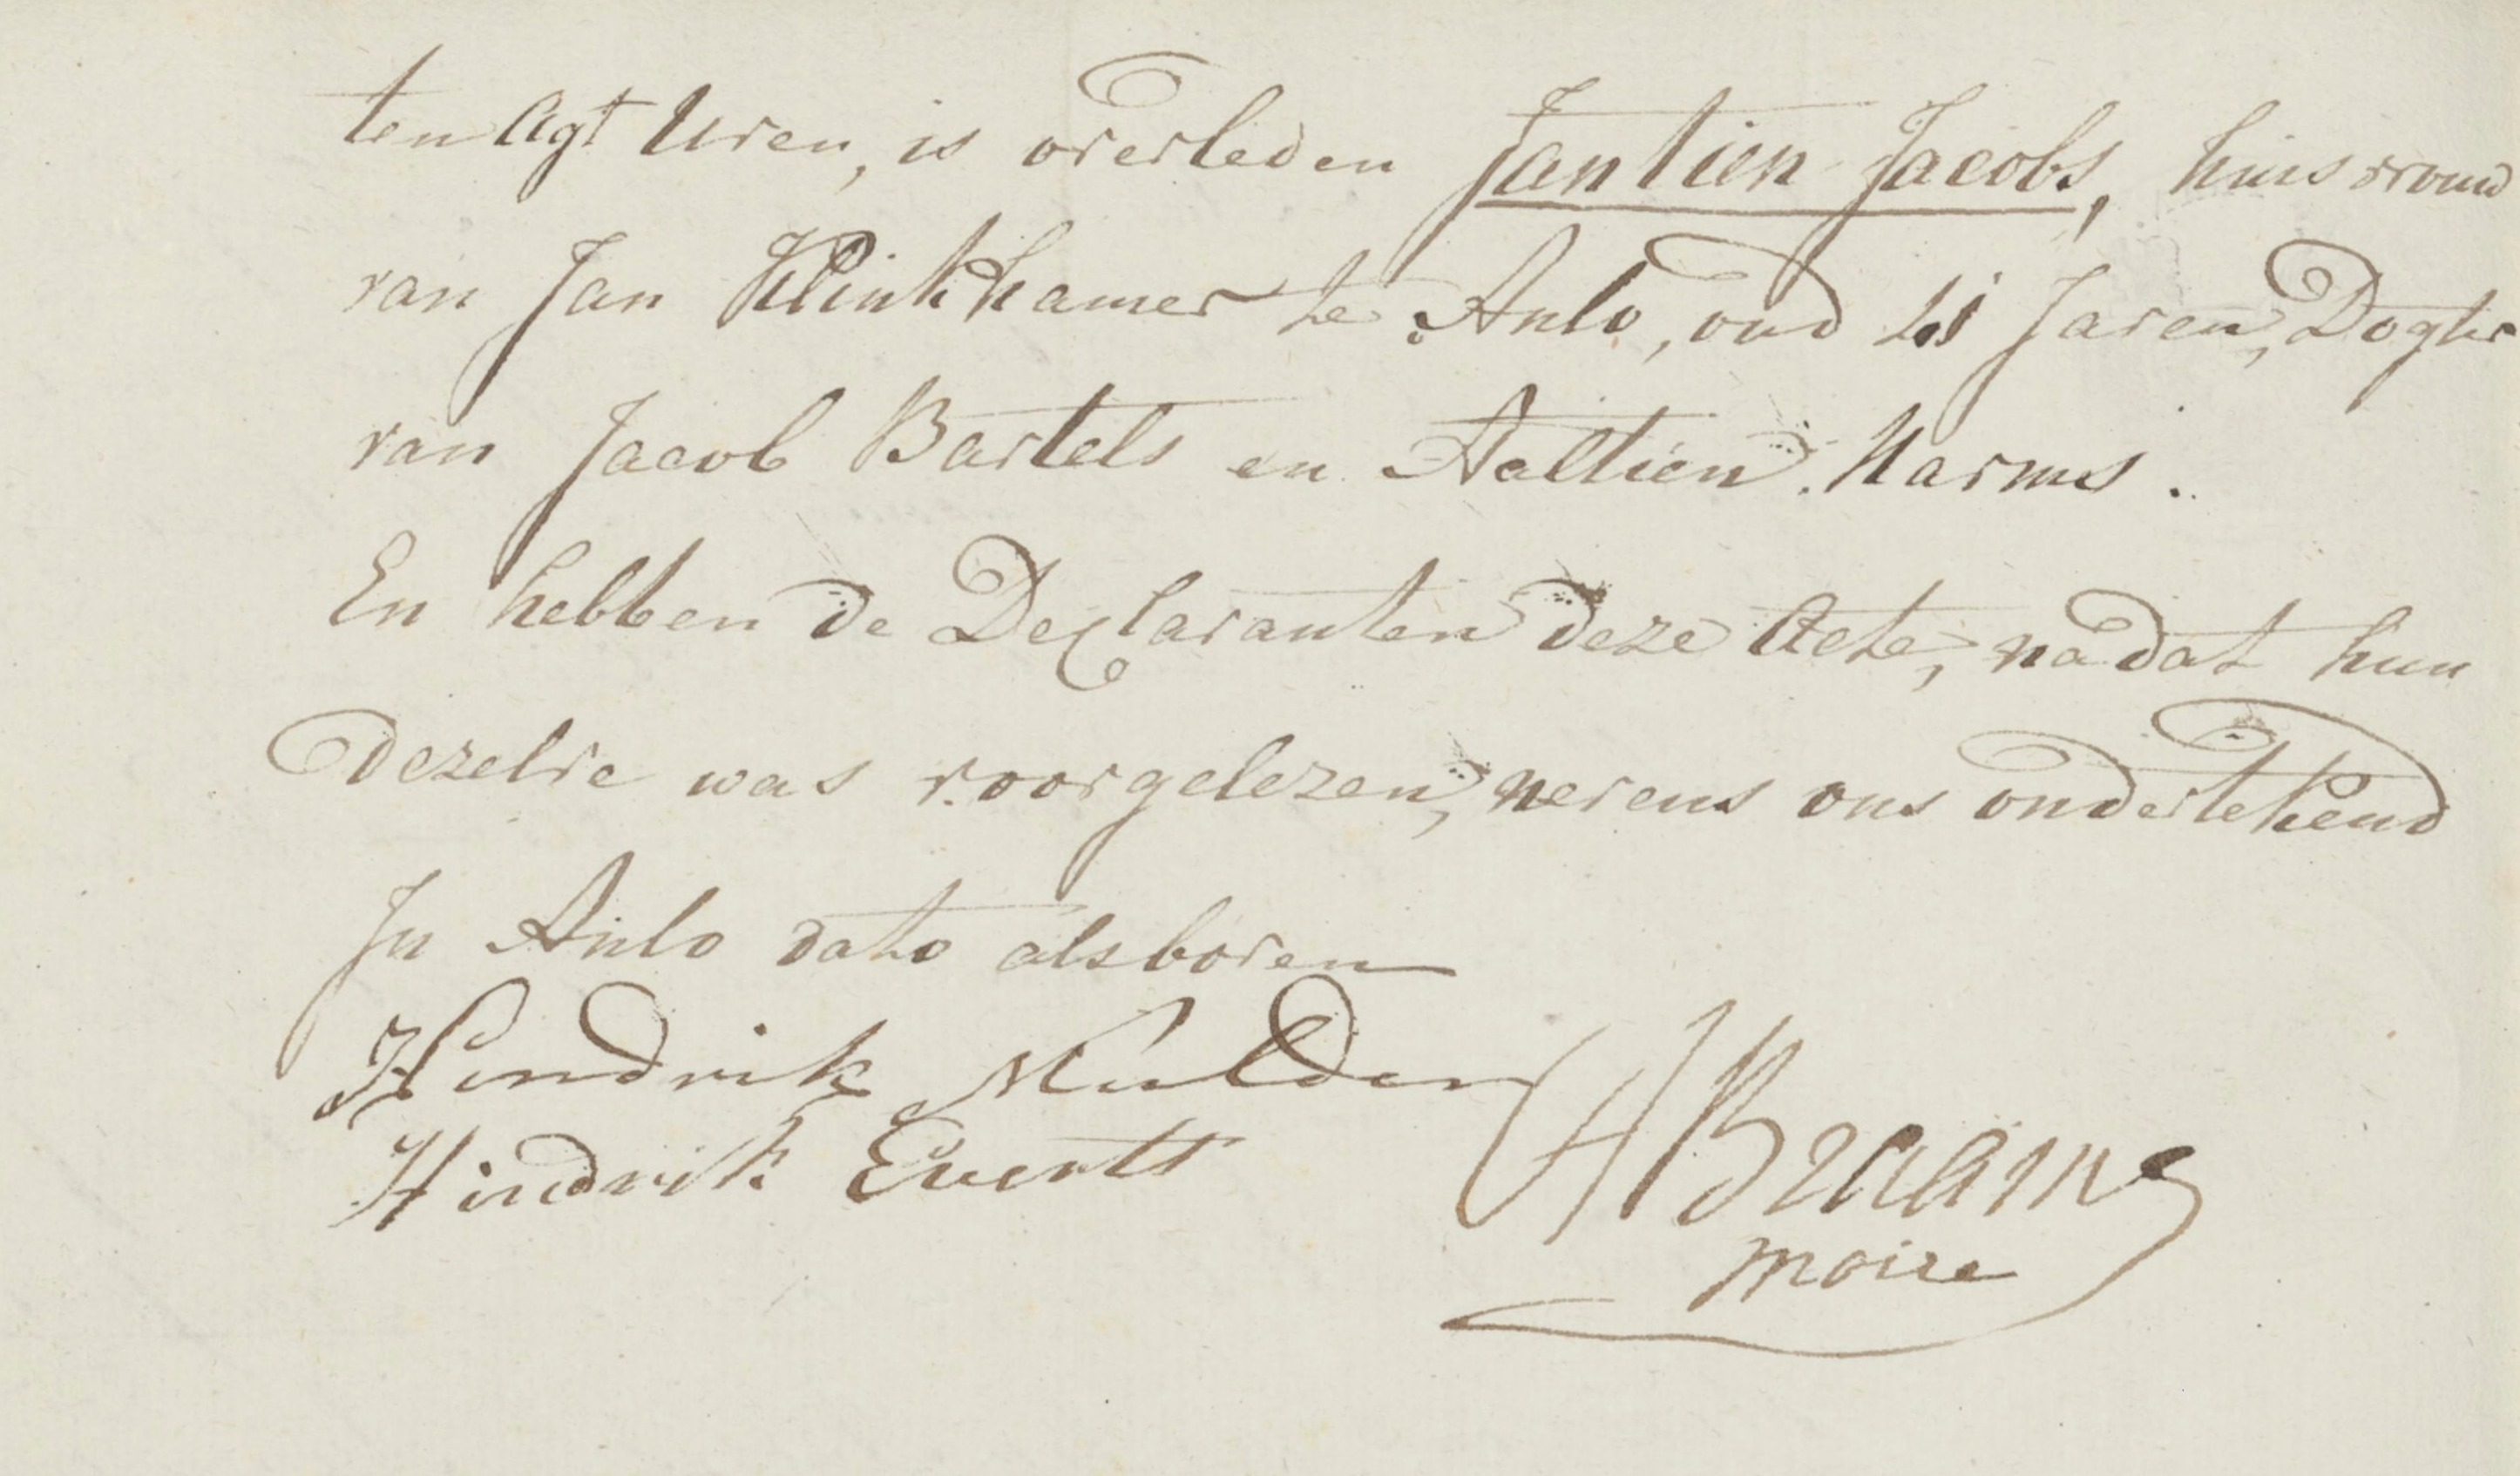 ten Agt Uren, is overleden Jantien Jacobs, huisvrouw
van Jan Klinkhamer te Anlo, oud Jaren, Dogter
van Jacob Bartels en Aaltien Harms.
En hebben de Declaranten deze Acte, nadat hun
dezelve was voorgelezen, nevens ons ondertekend
In Anlo dato alsboven
Hendrik Mulder
Hindrik Everts
H Braams
maire